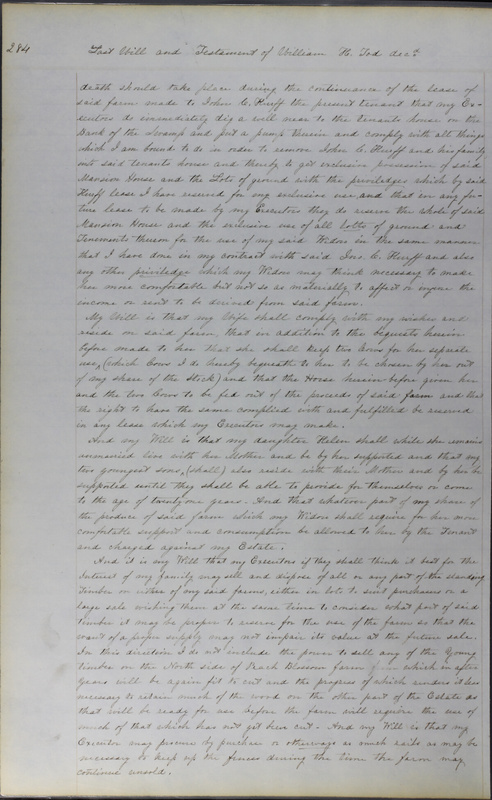 284
Last Will and Testament of William H. Tod decd
death should take place during the continuance of the lease of
said farm made to John C. Huff the present tenant that my Ex-
ecutors do immediately dig a well near to the tenants house on the
Bank of the Swamp and put a pump therein and comply with all things
which I am bound to do in order to remove John C Huff and his family
into said tenants house and thereby to get exclusive possession of said
Mansion House and the Lots of ground with the priviledges which by said
Huff lease I have reserved for my exclusive use and that in any fu-
ture lease to be made by my Executors they do reserve the whole of said
Mansion House and the exclusive use of all lotts of ground and
Tenements thereon for the use of my said Widow in the same manner
that I have done in my contract with said Jno. C. Huff and also
any other priviledge which my Widow may think necessary to make
her more comfortable but not so as materially to affect or injure the
income or rent to be derived from said farm.
My Will is that my Wife shall comply with my wishes and
reside on said farm, that in addition to the bequests herein
before made to her that she shall keep two Cows for her seperate
use, (which Cows I do hereby bequeath to her to be chosen by her out
of my share of the Stock) and that the Horse herein before given her
and the two Cows to be fed out of the proceeds of said farm and that
the right to have the same complied with and fulfilled be reserved
in any lease which my Executors may make.
And my Will is that my daughter Helen shall while she remains
unmarried live with her Mother and be by her supported and that my
two youngest sons, (shall) also reside with their Mother and by her be
supported until they shall be able to provide for themselves or come
to the age of twenty one years. And that whatever part of my share of
the produce of said farm which my Widow shall require for her more
comfortable support and consumption be allowed to her by the Tenant
and charged against my Estate.
And it is my Will that my Executors if they shall think it best for the
Interest of my family may sell and dispose of all or any part of the standing
Timber on either of my said farms, either in lots to suit purchasers or a
large sale wishing them at the same time to consider what part of said
timber it may be proper to reserve for the use of the farm so that the
want of a proper supply may not impair its value at the future sale.
In this direction I do not include the power to sell any of the Young
timber on the North side of Peach Blossom farm which in after
years will be again fit to cut and the progress of which renders it less
necessary to retain much of the wood on the other part of the Estate as
that will be ready for use before the farm will require the use of
much of that which has not yet been cut. And my Will is that my
Executor may procure by purchase or otherways as much rails as may be
necessary to keep up the fences during the time the farm may
continue unsold.